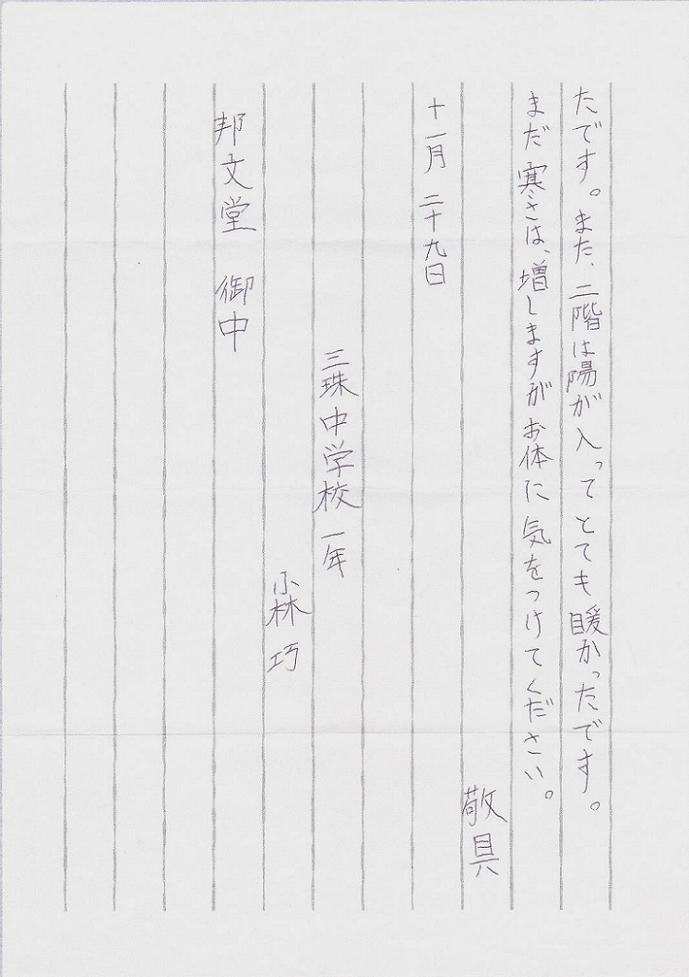 たです。また、二階は陽が入ってとても暖かったです。
まだ寒さは、増しますがお体に気をつけてください。
敬具
十一月二十九日
三珠中学校一年
小林巧
邦文堂 御中